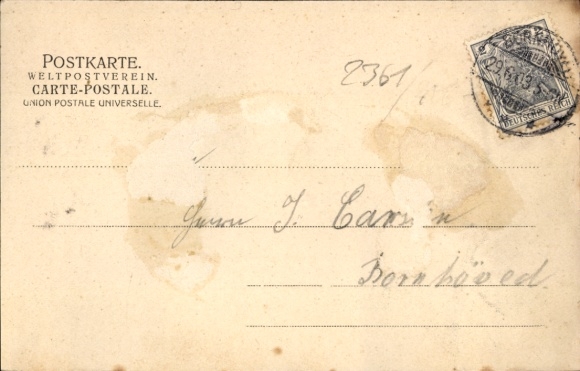 POSTKARTE.
WELTPOSTVEREIN.
CARTE-POSTALE.
UNION POSTALE UNIVERSELLE.
2361
29.6.03.5-
DEUTSCHES REICH
Herrn J.
Bornhöved